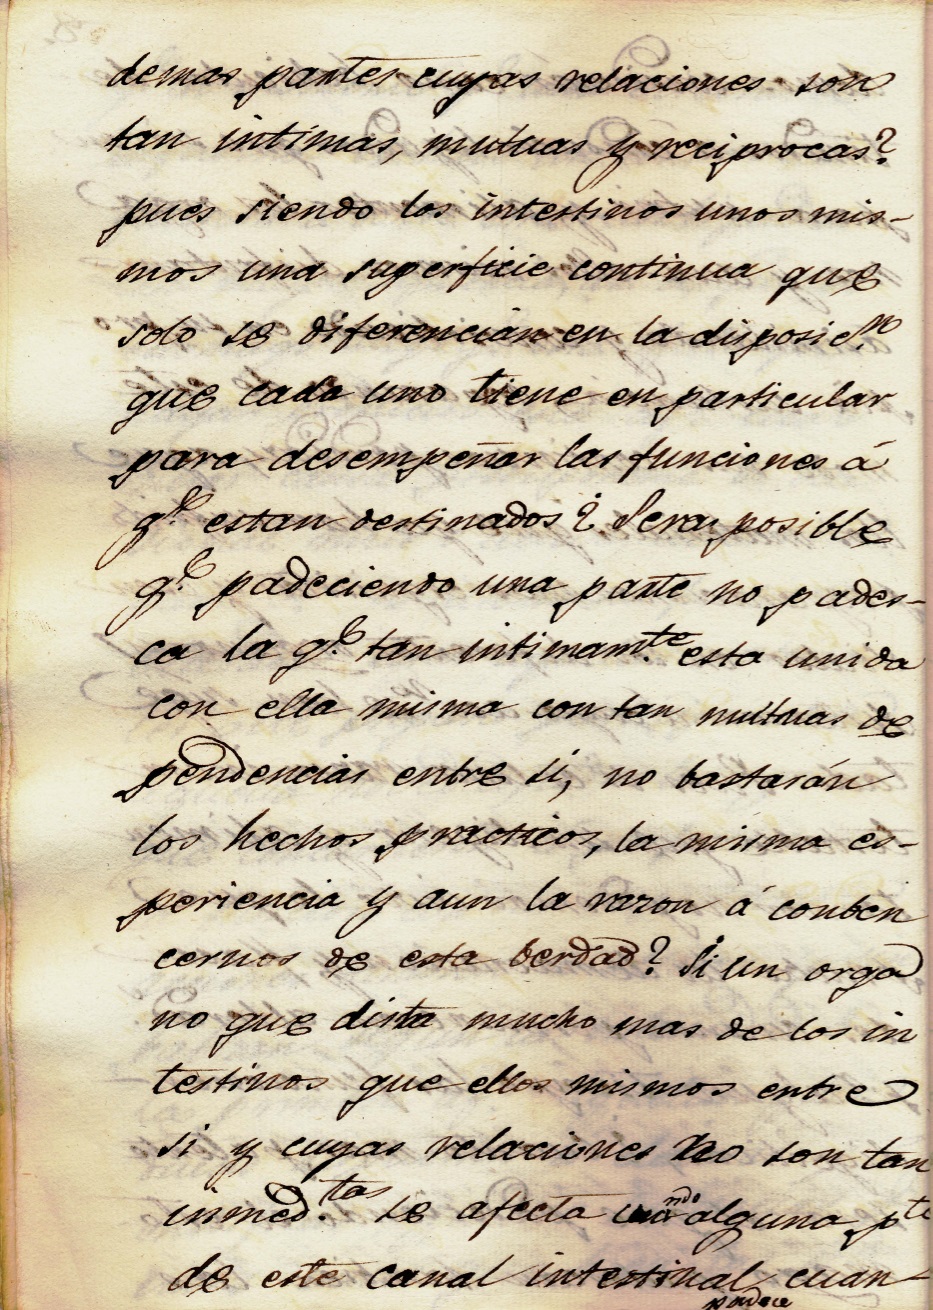 demas partes cuyas relaciones son
tan intimas, mutuas y reciprocas?
pues siendo los intestinos unos mis-
mos una superficie continua que
solo se diferencián en la disposic.on
que cada uno tiene en particular
para desempeñar las funciones á
q.e estan destinados? Sera posible
q.e padeciendo una parte no pades-
ca la q.e tan intimam.te esta unida
con ella misma con tan mutuas de
pendencias entre si, no bastarán
los hechos practicos, la misma es-
periencia y aun la razon á conben
cernos de esta berdad? Si un orga
no que dista mucho mas de los in
testinos que ellos mismos entre
si y cuyas relaciones no son tan
inmed.tas se afecta alguna p.te
de este canal intestinal cuan-
padece